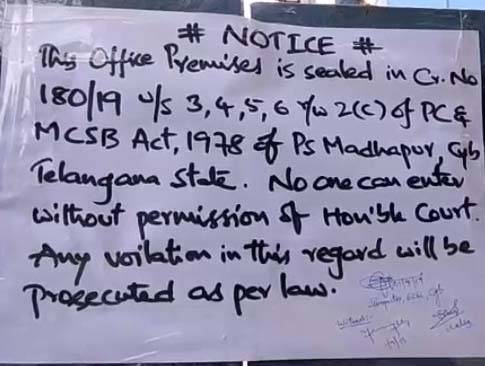 # NOTICE #
This Office Premises is sealed in Cr. No
180/19 u/s 3,4,5,6 r/w 2(c) of PC &
MCSB Act, 1978 of PS Madhapur, Cyb
Telangana State. No one can enter
without permission of Hon'ble Court.
Any voilation in this regard will be
prosecuted as per law.
Witness:-